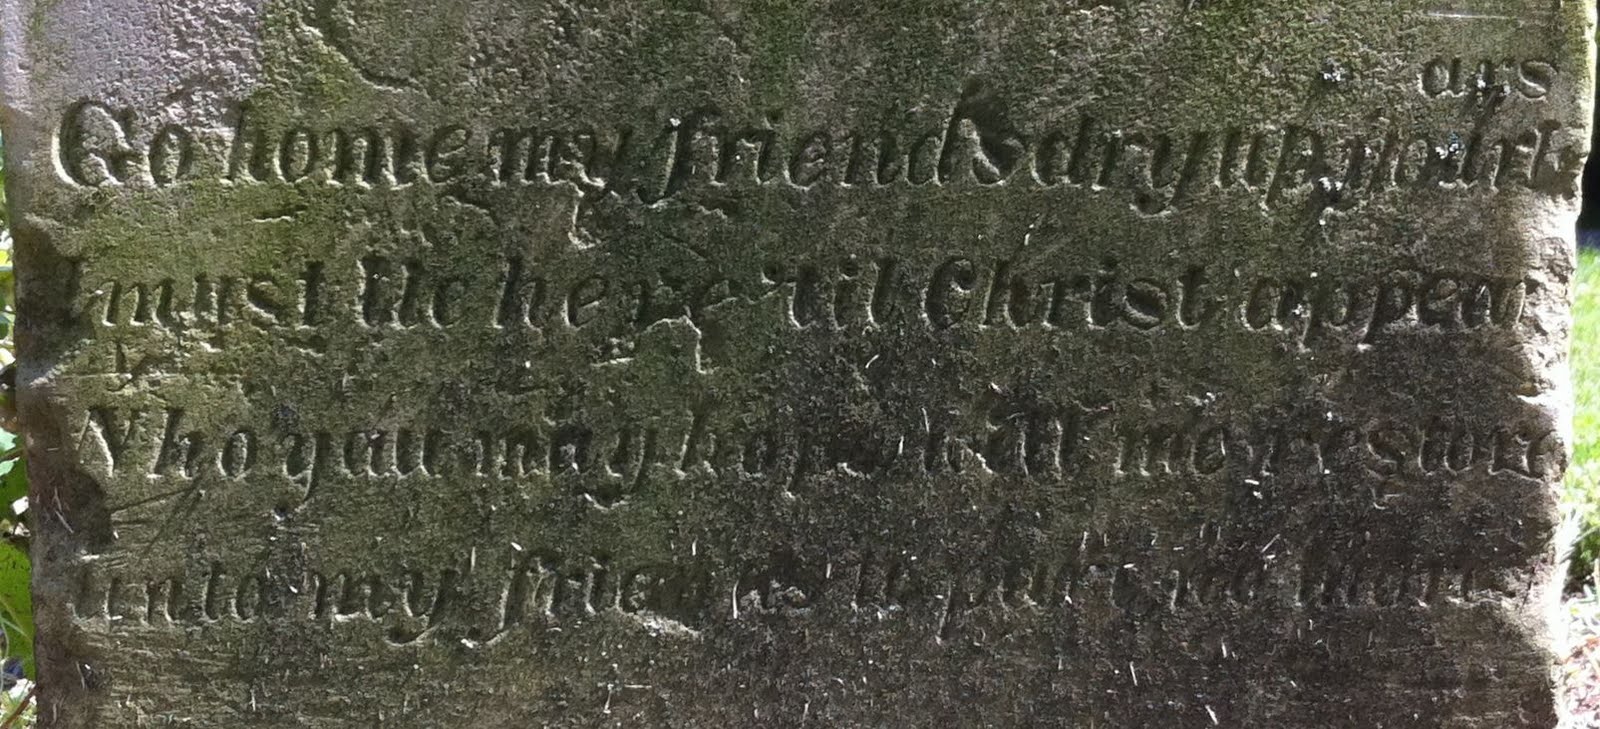 ars
Go home my friends dry up your
I must lie here 'til Christ appear
Who you may hope will me restore
Unto my friends to part no more